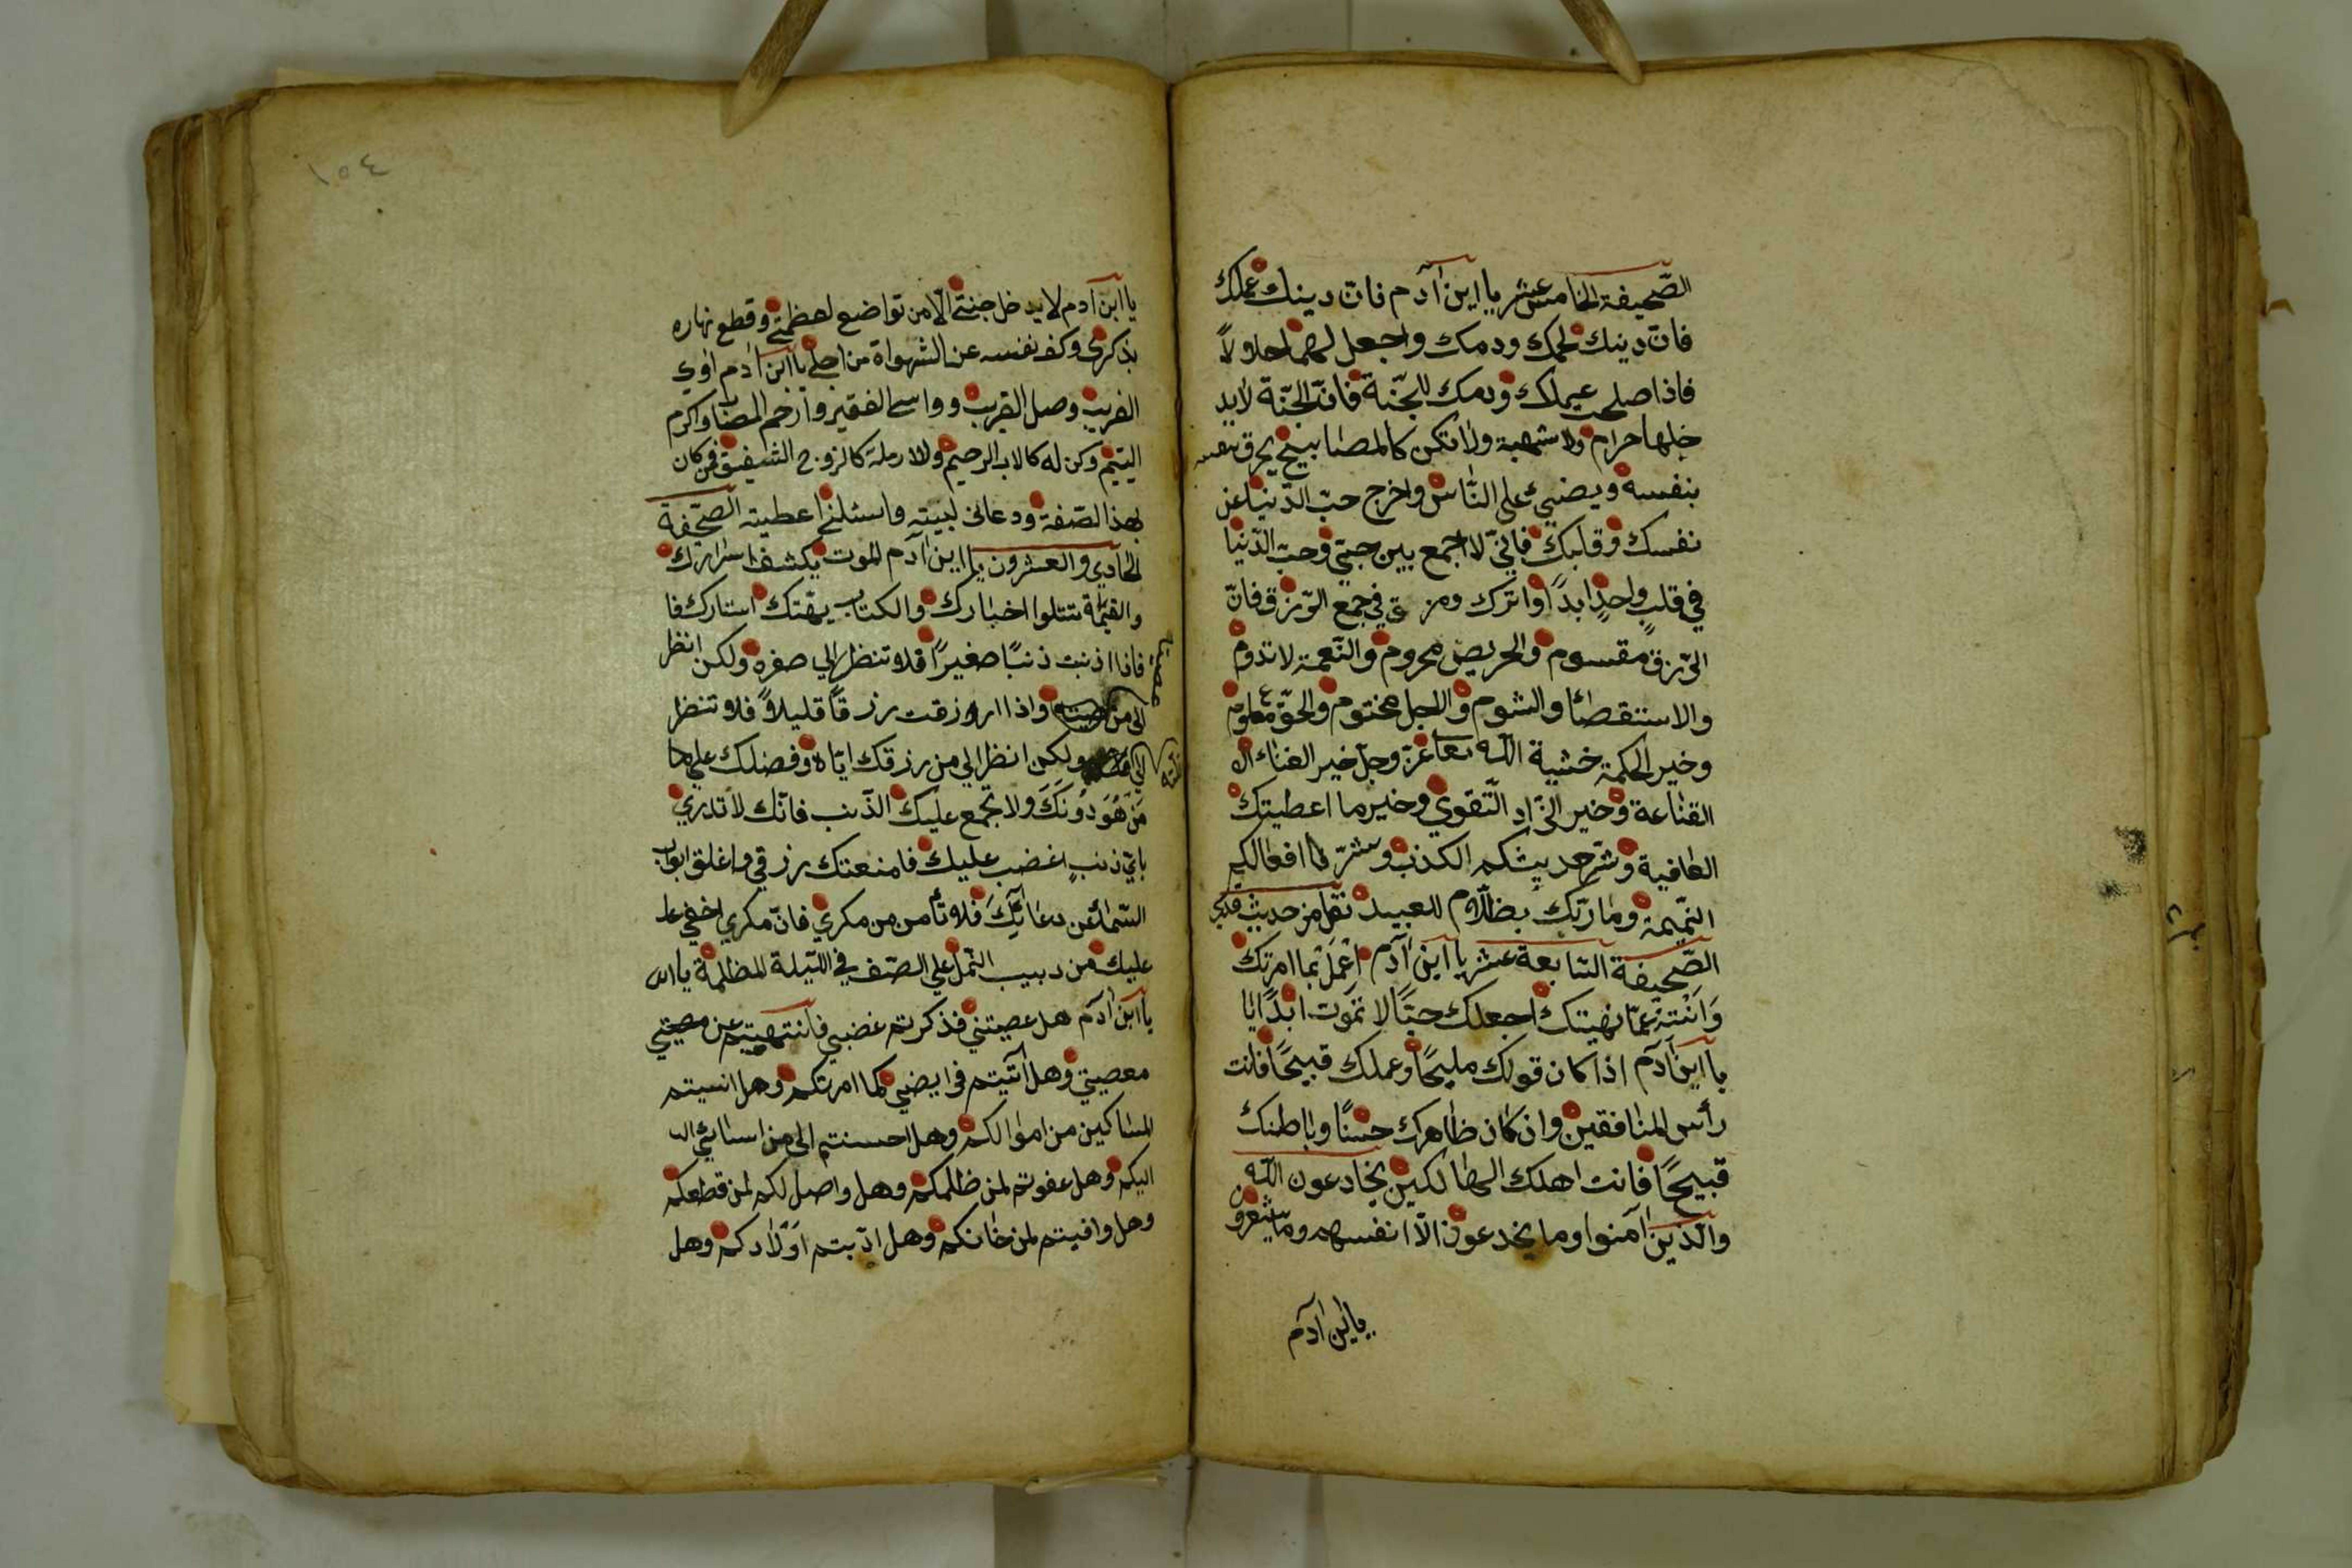 الصّحيفة الخامس عشر يا ابن آدم فانّ دينك عملك
فانّ دينك لحمك ودمك واجعل لهما حلولاً
فاذا صلحت عيملك ودمك للجنّة فانّ الجنّة لايد
خلها حرام ولا شبهة ولا تكن كالمصابيح يحرق نفسه
بنفسه ويضيئ على النّاس واخرج حبّ الدّنيا عن
نفسك وقلبك فانّي لا اجمع بين حبّي وحبّ الدّنيا
في قلبٍ واحدٍ ابداً واترك ومز ق في جمع الرّزق فانّ
الرّزق مقسوم والحريص محروم والنّعمة لا تدوم
والاستقصاء والشوم والاجل مختوم والحقّ معلوم
وخير الحكمة خشية اللّه تعا عزّ وجلّ خير الغناء ال
القناعة وخير الزّاد التّقوي وخير ما اعطيتك
العافية وشرّ حديثكم الكذب وشرّ ما افعالكم
النّميمة وما ربّك بظلّام للعبيد نقل من حديث قدسي
الصّحيفة السّابعة عشر يا ابن آدم اعمل بما امرتك
وانته عمّا نهيتك اجعلك حيّاً لا تموت ابداً ايا
يا ابن آدم اذا كان قولك مليحاً وعملك قبيحاً فانت
رأس المنافقين وان كان ظاهرك حسناً وباطنك
قبيحاً فانت اهلك الهالكين يخادعون اللّه
والّذين آمنوا وما يخدعون الّا انفسهم وما يشعرون
يا ابن آدم
١٥٤
يا ابن آدم لايدخل جنّتي الّا من تواضع لعظمتي وقطع نهاره
بذكري وكفّ نفسه عن الشهواة من اجلي يا ابن آدم اوي
الغريب وصل القريب وواسي الفقير وارحم المصاب واكرم
اليتيم وكن له كالاب الرحيم وللارملة كالزوج الشفيق فمن كان
بهذا الصّفة ودعاني لبيته واسئلني اعطيته الصّحفة
الحادي والعشرون يا ابن آدم الموت يكشف اسرارك
والقيمة تتلوا اخبارك والكتاب يهتك استارك فا
فاذا اذنبت ذنبًا صغيراً فلا تنظر الي صغره ولكن انظر
الي من عصيته واذا ارزقت رزقاً قليلاً فلا تنظر
الي قلّته ولكن انظر الي من رزقك ايّاه وفضلك علي ما
مَن هُوَ دُونَكَ ولا تجمع عليك الذّنب فانّك لا تدري
بايّ ذنبٍ اغضب عليك فامنعتك رزقي واغلق ابواب
السّماء عن دعائك فلا تأمن من مكري فانّ مكري اخفي عل
عليك من دبيب النّمل علي الصّف في اللّيلة المظلمة يا اب
يا ابن آدم هل عصيتني فذكرتم غضبي فانتهيتم عن معصيتي
معصيتي وهل آتيتم فرايضي كما امرتكم وهل انسيتم
المساكين من اموالكم وهل احسنتم الي من اسائي ال
اليكم وهل عفوتم لمن ظلمكم وهل واصلكم لمن قطعكم
وهل وافيتم لمن خانكم وهل ادّبتم اوْلادكم وهل